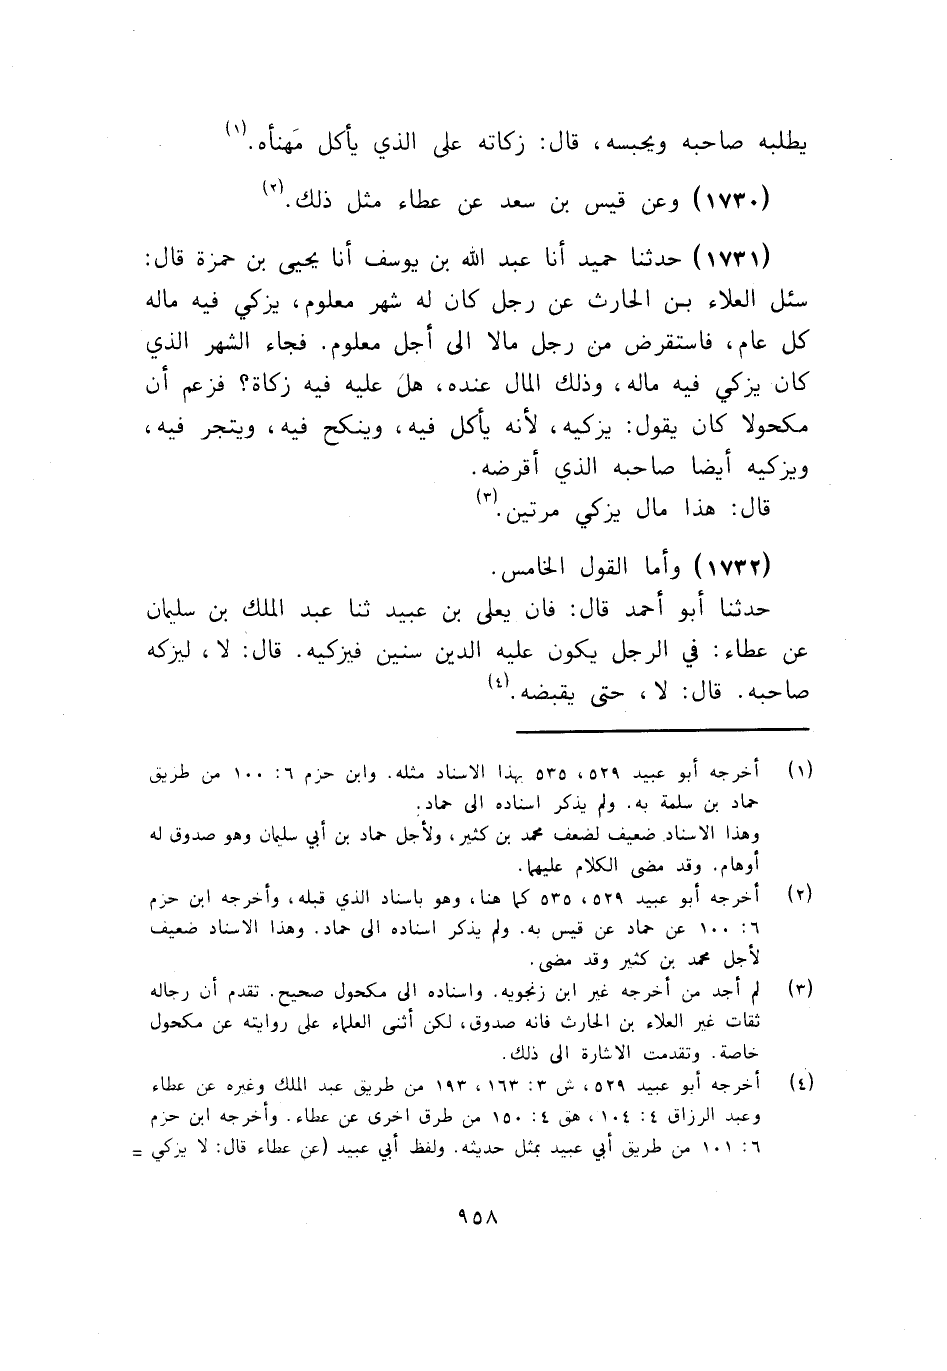 يطلبه صاحبه ويحبسه، قال: زكاته على الذي يأكل مَهنأه.(١)
(١٧٣٠) وعن قيس بن سعد عن عطاء مثل ذلك.(٢)
(١٧٣١) حدثنا حميد أنا عبد الله بن يوسف أنا يحيى بن حمزة قال:
سئل العلاء بن الحارث عن رجل كان له شهر معلوم، يزكي فيه ماله
كل عام، فاستقرض من رجل مالا الى أجل معلوم. فجاء الشهر الذي
كان يزكي فيه ماله، وذلك المال عنده، هل عليه فيه زكاة؟ فزعم أن
مكحولا كان يقول: يزكيه، لأنه يأكل فيه، وينكح فيه، ويتجر فيه،
ويزكيه أيضا صاحبه الذي أقرضه.
قال: هذا مال يزكي مرتين.(٣)
(١٧٣٢) وأما القول الخامس.
حدثنا أبو أحمد قال: فان يعلى بن عبيد ثنا عبد الملك بن سليمان
عن عطاء: في الرجل يكون عليه الدين سنين فيزكيه. قال: لا، ليزكه
صاحبه. قال: لا، حتى يقبضه.(٤)
(١) أخرجه أبو عبيد ٥٢٩، ٥٣٥ بهذا الاسناد مثله. وابن حزم ٦: ١٠٠ من طريق
حماد بن سلمة به. ولم يذكر اسناده الى حماد.
وهذا الاسناد ضعيف لضعف محمد بن كثير، ولأجل حماد بن أبي سليمان وهو صدوق له
أوهام. وقد مضى الكلام عليهما.
(٢) أخرجه أبو عبيد ٥٢٩، ٥٣٥ كما هنا، وهو باسناد الذي قبله، وأخرجه ابن حزم
٦: ١٠٠ عن حماد عن قيس به. ولم يذكر اسناده الى حماد. وهذا الاسناد ضعيف
لأجل محمد بن كثير وقد مضى.
(٣) لم أجد من أخرجه غير ابن زنجويه. واسناده الى مكحول صحيح. تقدم أن رجاله
ثقات غير العلاء بن الحارث فانه صدوق، لكن أثنى العلماء على روايته عن مكحول
خاصة. وتقدمت الاشارة الى ذلك.
(٤) أخرجه أبو عبيد ٥٢٩، ش ٣: ١٦٣، ١٩٣ من طريق عبد الملك وغيره عن عطاء
وعبد الرزاق ٤: ١٠٤، هق ٤: ١٥٠ من طرق اخرى عن عطاء. وأخرجه ابن حزم
٦: ١٠١ من طريق أبي عبيد بمثل حديثه. ولفظ أبي عبيد (عن عطاء قال: لا يزكي =
٩٥٨